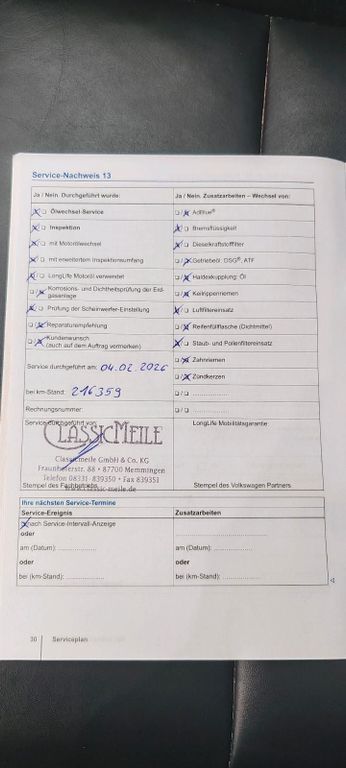 Service-Nachweis 13
Ja / Nein. Durchgeführt wurde:
Ja / Nein. Zusatzarbeiten – Wechsel von:
Ölwechsel-Service
AdBlue®
Inspektion
Bremsflüssigkeit
mit Motorölwechsel
Dieselkraftstofffilter
mit erweitertem Inspektionsumfang
Getriebeöl: DSG®, ATF
LongLife Motoröl verwendet
Haldexkupplung: Öl
Korrosions- und Dichtheitsprüfung der Erdgasanlage
Keilrippenriemen
Prüfung der Scheinwerfer-Einstellung
Luftfiltereinsatz
Reparaturempfehlung
Reifenfüllflasche (Dichtmittel)
Kundenwunsch
(auch auf dem Auftrag vermerken)
Staub- und Pollenfiltereinsatz
Zahnriemen
Service durchgeführt am: 04.02.2026
Zündkerzen
bei km-Stand: 216359
Rechnungsnummer:
Service durchgeführt von:
LongLife Mobilitätsgarantie:
CLASSICMEILE
Classicmeile GmbH & Co. KG
Fraunhoferstr. 88 • 87700 Memmingen
Telefon 08331-839350 • Fax 839351
www.classic-meile.de
Stempel des Fachbetriebs
Stempel des Volkswagen Partners
Ihre nächsten Service-Termine
Service-Ereignis
Zusatzarbeiten
nach Service-Intervall-Anzeige
oder
am (Datum):
am (Datum):
oder
oder
bei (km-Stand):
bei (km-Stand):
30 Serviceplan